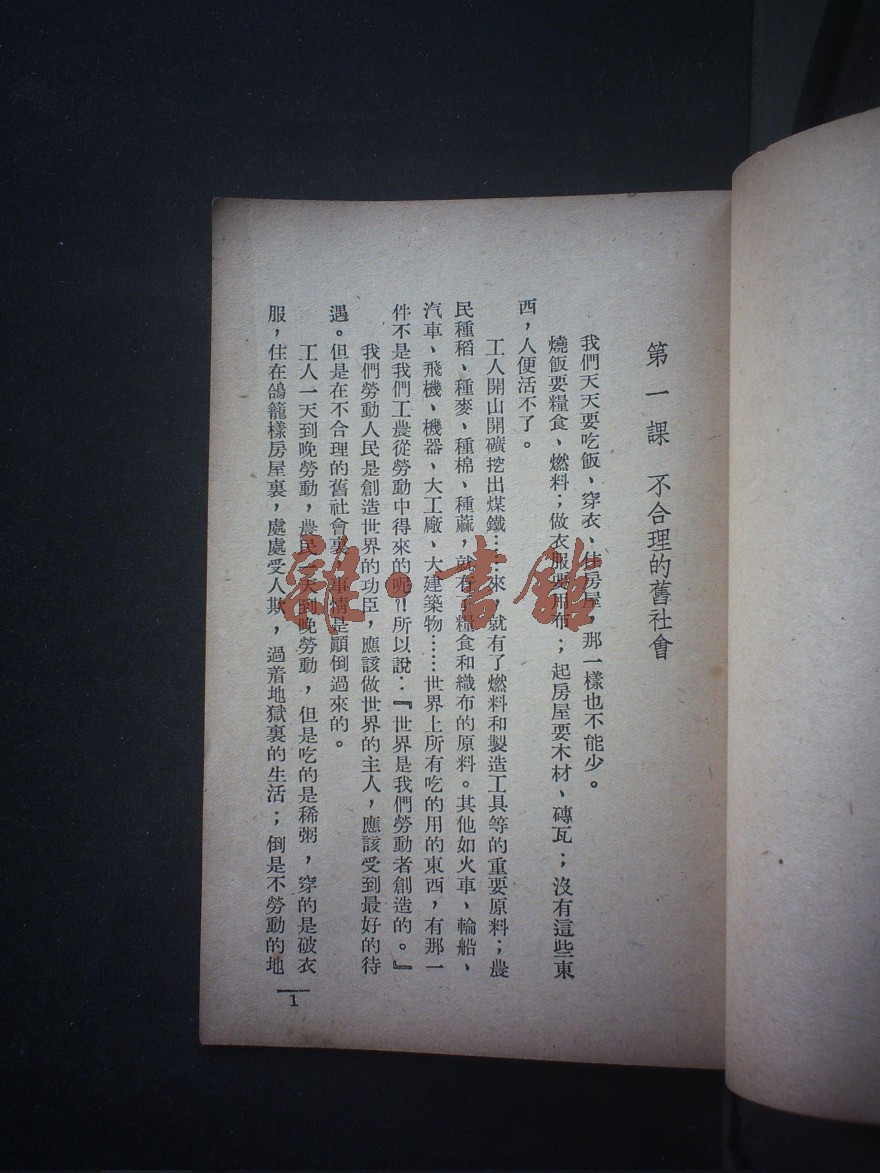 第一課 不合理的舊社會
我們天天要吃飯、穿衣、住房屋，那一樣也不能少。
燒飯要糧食、燃料；做衣服要用布；起房屋要木材、磚瓦；沒有這些東
西，人便活不了。
工人開山開礦挖出煤鐵……來，就有了燃料和製造工具等的重要原料；農
民種稻、種麥、種棉、種蔴，就有了糧食和織布的原料。其他如火車、輪船、
汽車、飛機、機器、大工廠、大建築物……世界上所有吃的用的東西，有那一
件不是我們工農從勞動中得來的呢？！所以說：『世界是我們勞動者創造的。』
我們勞動人民是創造世界的功臣，應該做世界的主人，應該受到最好的待
遇。但是在不合理的舊社會裏，事情是顚倒過來的。
工人一天到晚勞動，農民一天到晚勞動，但是吃的是稀粥，穿的是破衣
服，住在鴿籠樣房屋裏，處處受人欺，過着地獄裏的生活；倒是不勞動的地
1
雜·書館